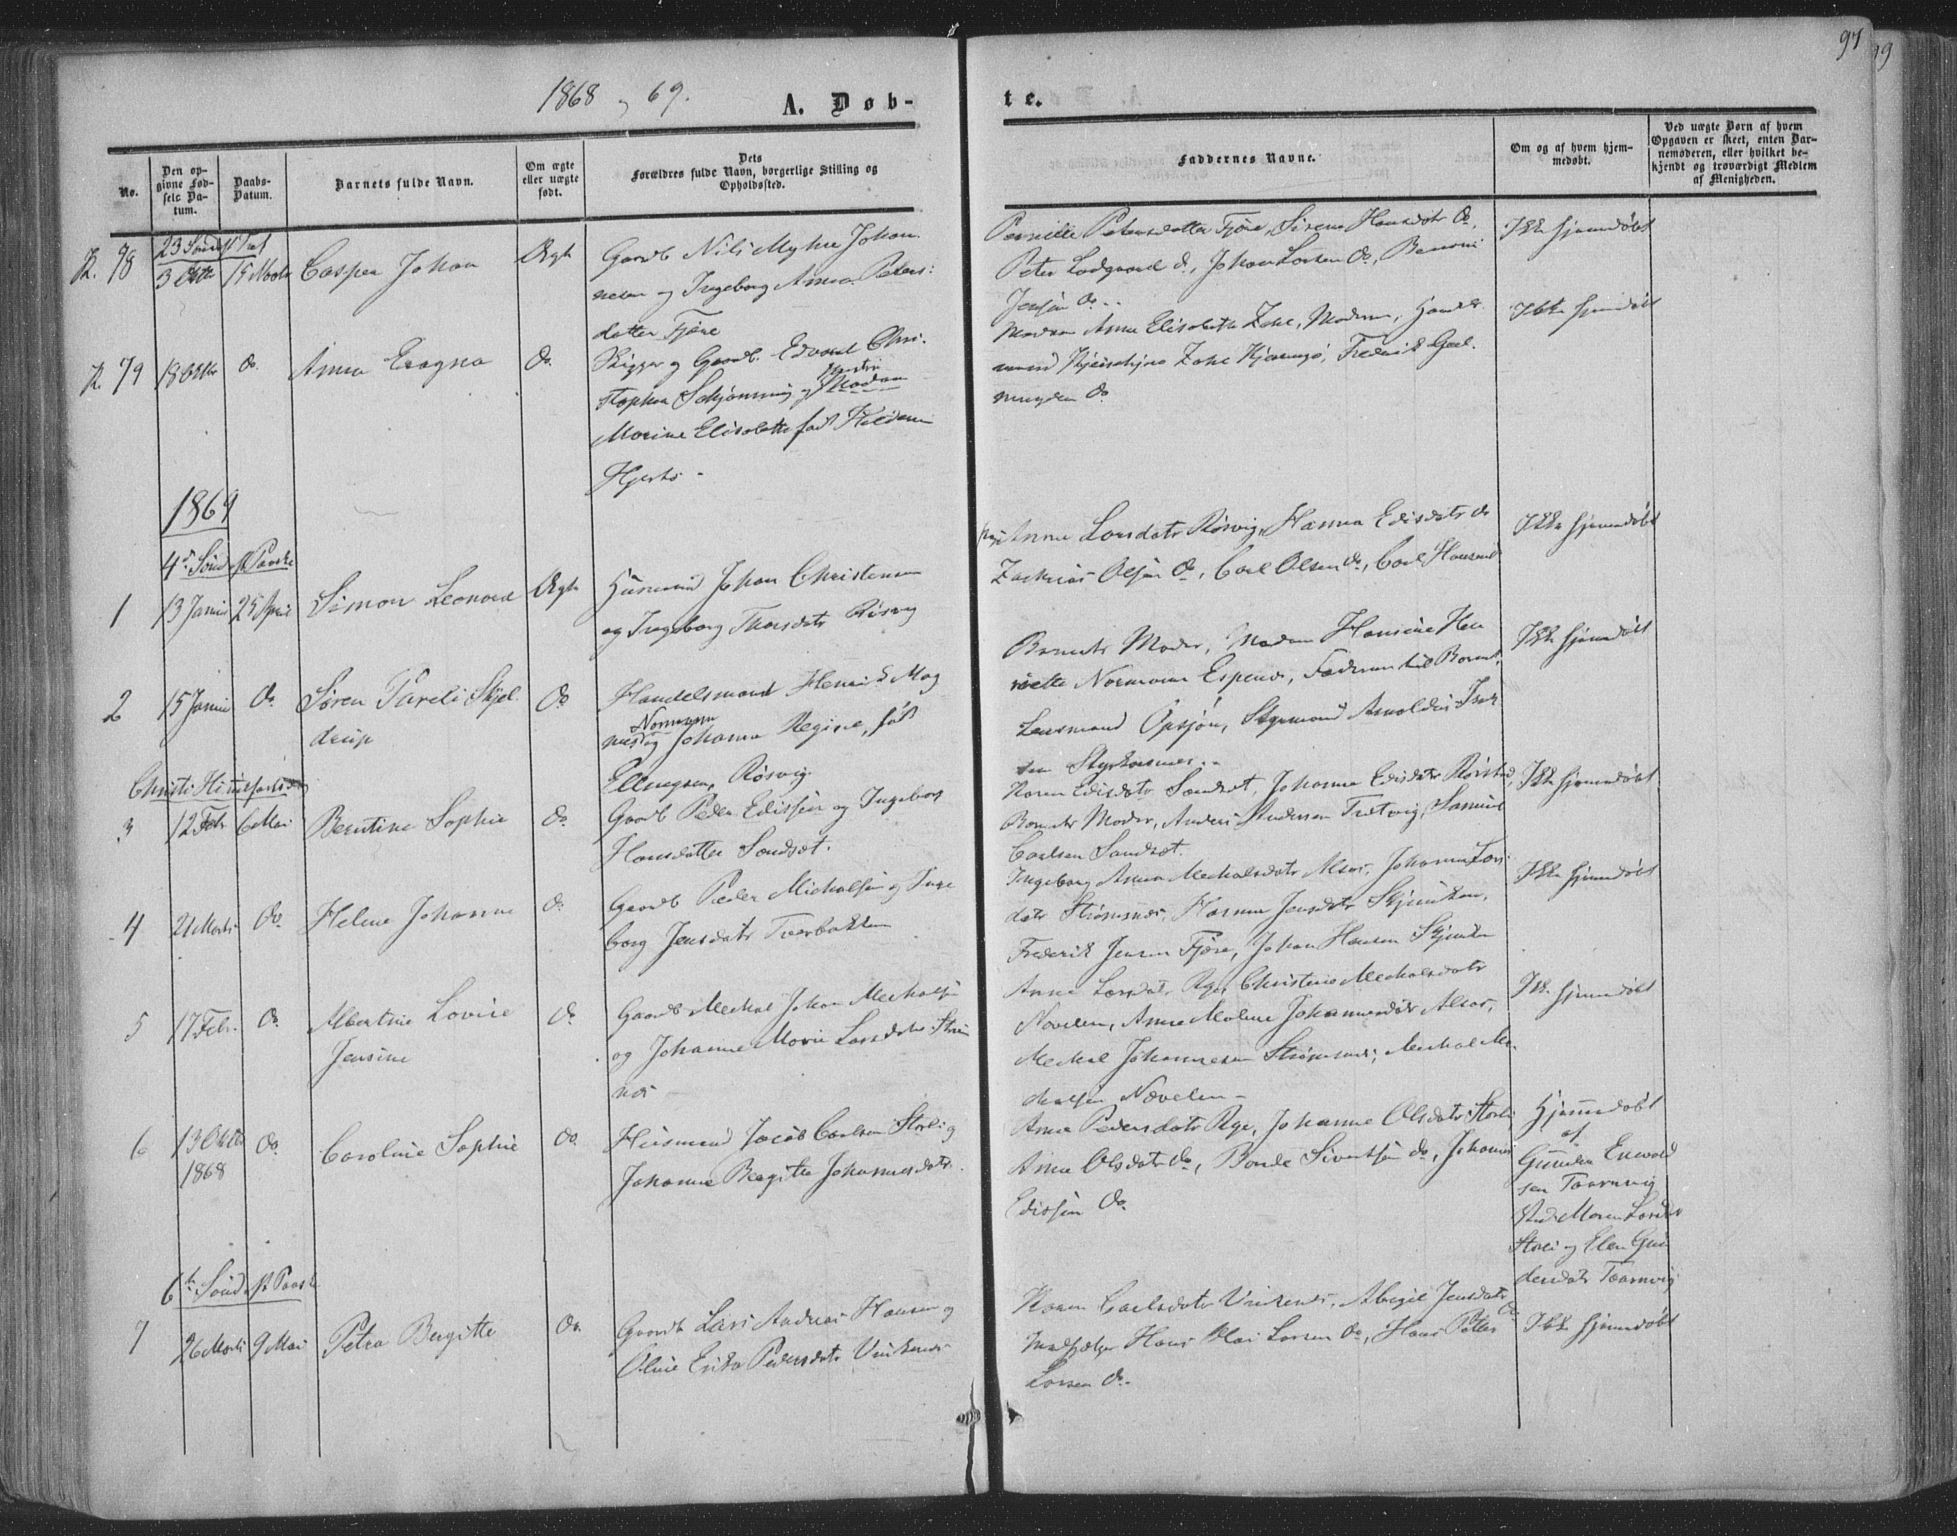 97
99
1868 og 69.
A. Døb-
te.
No.
Den op-
givne Fød-
sels Da-
tum.
Daabs-
Datum.
Barnets fulde Navn.
Om ægte
eller uægte
født.
Dets
Forældres fulde Navn, borgerlige Stilling og
Opholdssted.
Faddernes Navne.
Om og af hvem hjem-
medøbt.
Ved uægte Børn af hvem
Opgaven er skeet, enten Bar-
nemoderen, eller hvilket be-
kjendt og troværdigt Medlem
af Menigheden.
78
3 Oktr
15 Novbr
Casper Johan
Ægte
Gaardb Nils Myhre Johan
nesen og Ingeborg Anna Peters:
datter Fjære
Pernille Petersdatter Fjære, Sirena Hansdatr do,
Peter Lodgaard do, Johan Larsen do, Benoni
Jensen do
Ikke hjemdøbt
79
18 Oktr
do
Anna
do.
Skipper og Gaardb. Edvard Chri-
stopher Schjønning og Hustru
Madam
Marine Elisabeth fød
Hjertø -
Madam Anna Elisabeth Zahl, Moderen, Handels
mand Zahl Kjerringø, Frederik
do
Ikke hjemdøbt
1869
4de Sønd. ft Paaske
1
13 Januar
25 April
Simon Leonard
Ægte
Husmand Johan Christensen
og Ingeborg Thorsdatr Røsvig
Anne Larsdatr Røsvig, Hanna Edisdatr do
Zacharias Olsen do, Carl Olsen do, Carl Hansen do
Ikke hjemmedøbt
2
15 Januar
do
Søren Pareli Skjel
drup
do
Handelsmand Henrik Mag
nus Normann og Johanna Regine, født
Ellingsen, Røsvig
Barnets Moder, Madam Hansine Hen
riette Normann Espenes, Faderen til Barnet,
Lensmand Opsjøn, Styrmand Arnoldus
Styrkesnes
Ikke hjemmedøbt
Christi Himmelfartsdag
3
12 Febr
6 Mai
Berntine Sophie
do.
Gaardb Peder Edissen og Ingeborg
Hansdatter Sandsæt.
Karen Edisdatr Sandsæt, Johanna Edisdatr Rørstad,
Barnets Moder, Anders Andersen Trætvig, Samuel
Carlsen Sandsæt.
Ikke hjemmedøbt
4
21 Marts
do
Helene Johanne
do
Gaardb Peder Michalsen og Inge
borg Jensdatr Tverbakken
Ingeborg Anna Mechalsdatr Alsos, Johanna Lars-
datr Strømsnes, Hanna Jensdatr
Frederik Jensen Fjære, Johan Hansen
Ikke hjemmedøbt
5
17 Febr.
do.
Albertine Lovise
Jensine
do
Gaardb Mechal Johan Mechalsen
og Johanne Marie Larsdatr Strøms
nes -
Anne Larsdatr Røsvig, Christine Mechalsdatr
Nævelen, Anne Malene Johannesdatr Alsos,
Mechal Johannesen Strømsnes, Mechal Me-
chalsen Nævelen -
Ikke hjemmedøbt
6
13 Oktbr
1868
do.
Caroline Sophie
do.
Husmand Jacob Carlsen Storli og
Johanna Bergitte Johannesdatr.
Anne Pedersdatr Røsvig, Johanne Olsdatr Storli
Anne Olsdatr do, Bonde Sivertsen do, Johannes
Edissen do.
Hjemmedøbt
af
Gunder Enevold
sen Taarnvig
Maren Larsdtr
Storli og Elen Gun
dersdatr Taarnvig
6te Sønd ft Paaske
7
26 Marts
9 Mai
Petra Bergitte
do.
Gaardb Lars Andreas Hansen og
Oline Erika Pedersdatr
Karen Carlsdatr Abigel Jensdatr do
Hans Olai Larsen do, Hans Petter
Larsen do.
Ikke hjemmedøbt